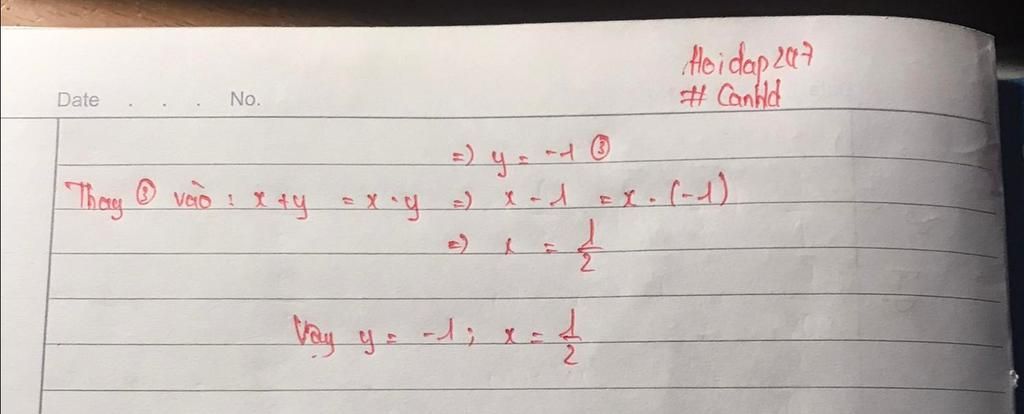 Hoidap247
# CanhId
Date . . . No.
=) y = -1 ③
Thay ③ vào : x + y = x . y =) x - 1 = x . (-1)
=) x = 1/2
Vậy y = -1 ; x = 1/2